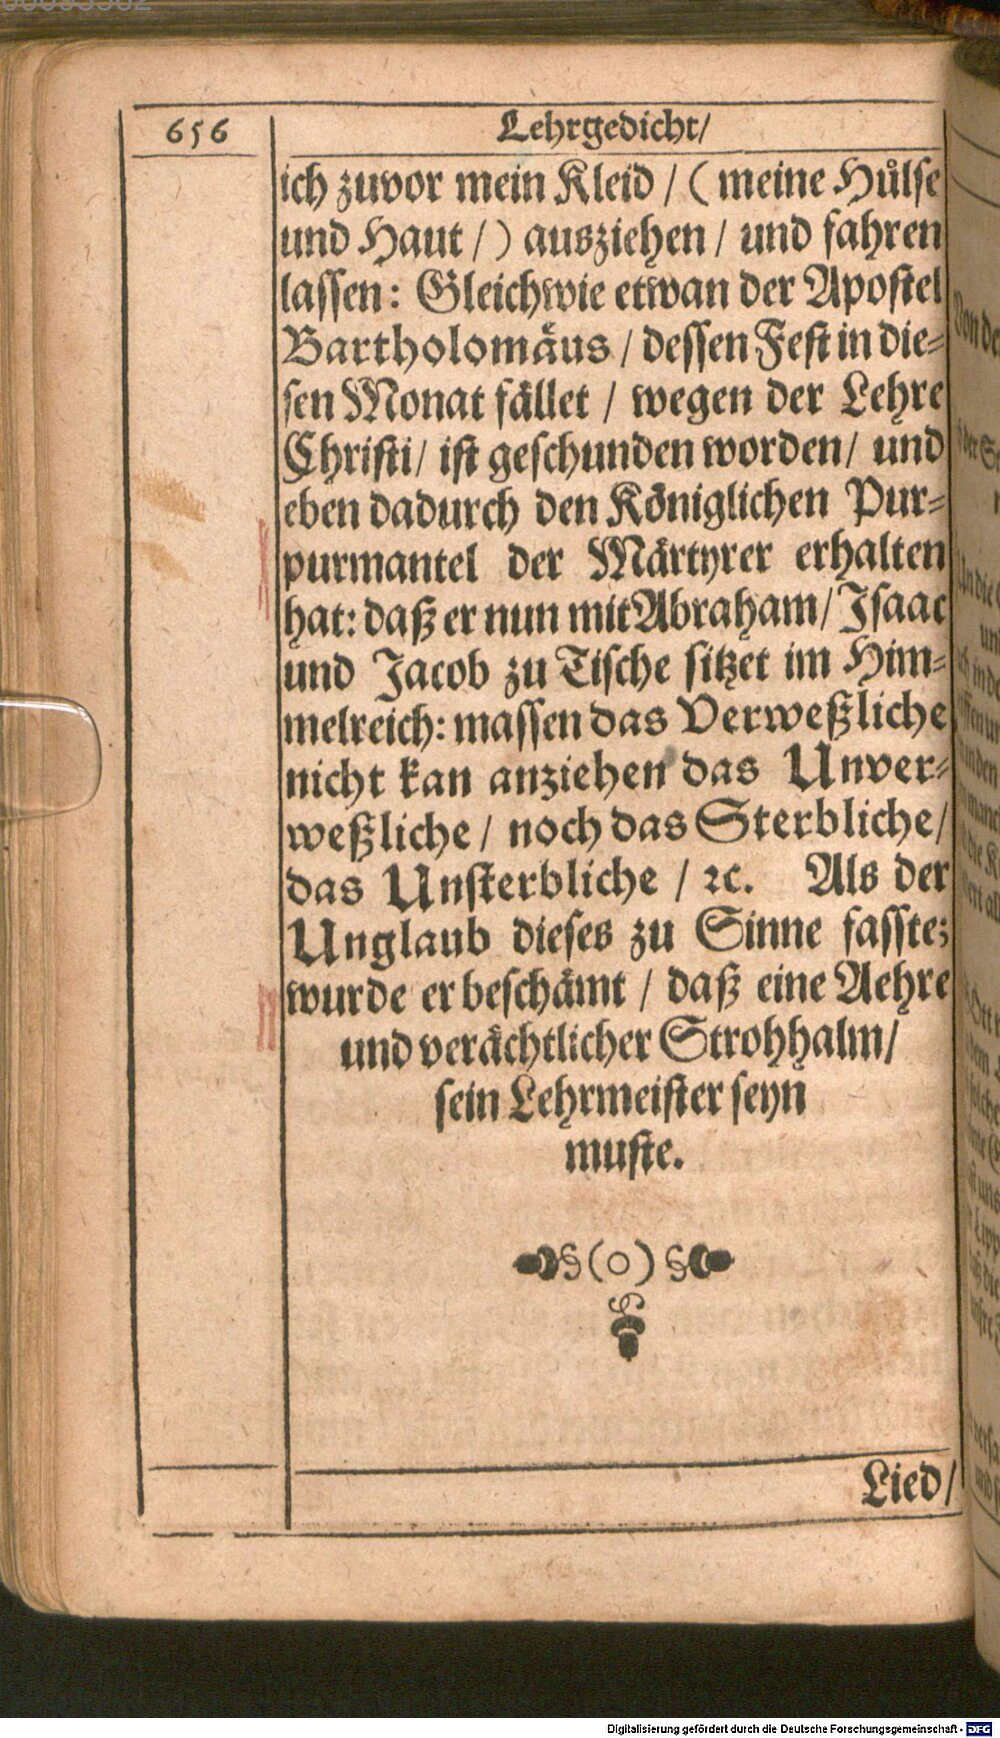 656
Lehrgedicht/
ich zuvor mein Kleid / ( meine Hůlse
und Haut /) ausziehen / und fahren
lassen: Gleichwie etwan der Apostel
Bartholomäus / dessen Fest in die-
sen Monat fället / wegen der Lehre
Christi/ ist geschunden worden/ und
eben dadurch den Königlichen Pur-
purmantel der Märtyrer erhalten
hat: daß er nun mit Abraham/ Isaac
und Jacob zu Tische sitzet im Him-
melreich: massen das Verweßliche
nicht kan anziehen das Unver-
weßliche / noch das Sterbliche/
das Unsterbliche / ꝛc. Als der
Unglaub dieses zu Sinne fasste;
wurde er beschämt / daß eine Aehre
und verächtlicher Strohhalm/
sein Lehrmeister seyn
muste.
§ (○) §
Lied/
Digitalisierung gefördert durch die Deutsche Forschungsgemeinschaft - DFG